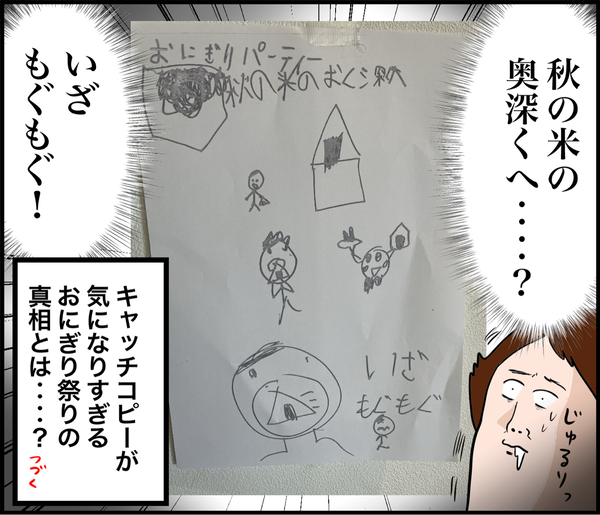 秋の米の
奥深くへ‥‥?
いざ
もぐもぐ!
おにぎりパーティー
秋の米のおくふかくへ
いざ
もぐもぐ
キャッチコピーが
気になりすぎる
おにぎり祭りの
真相とは‥‥?
つづく
じゅるりっ